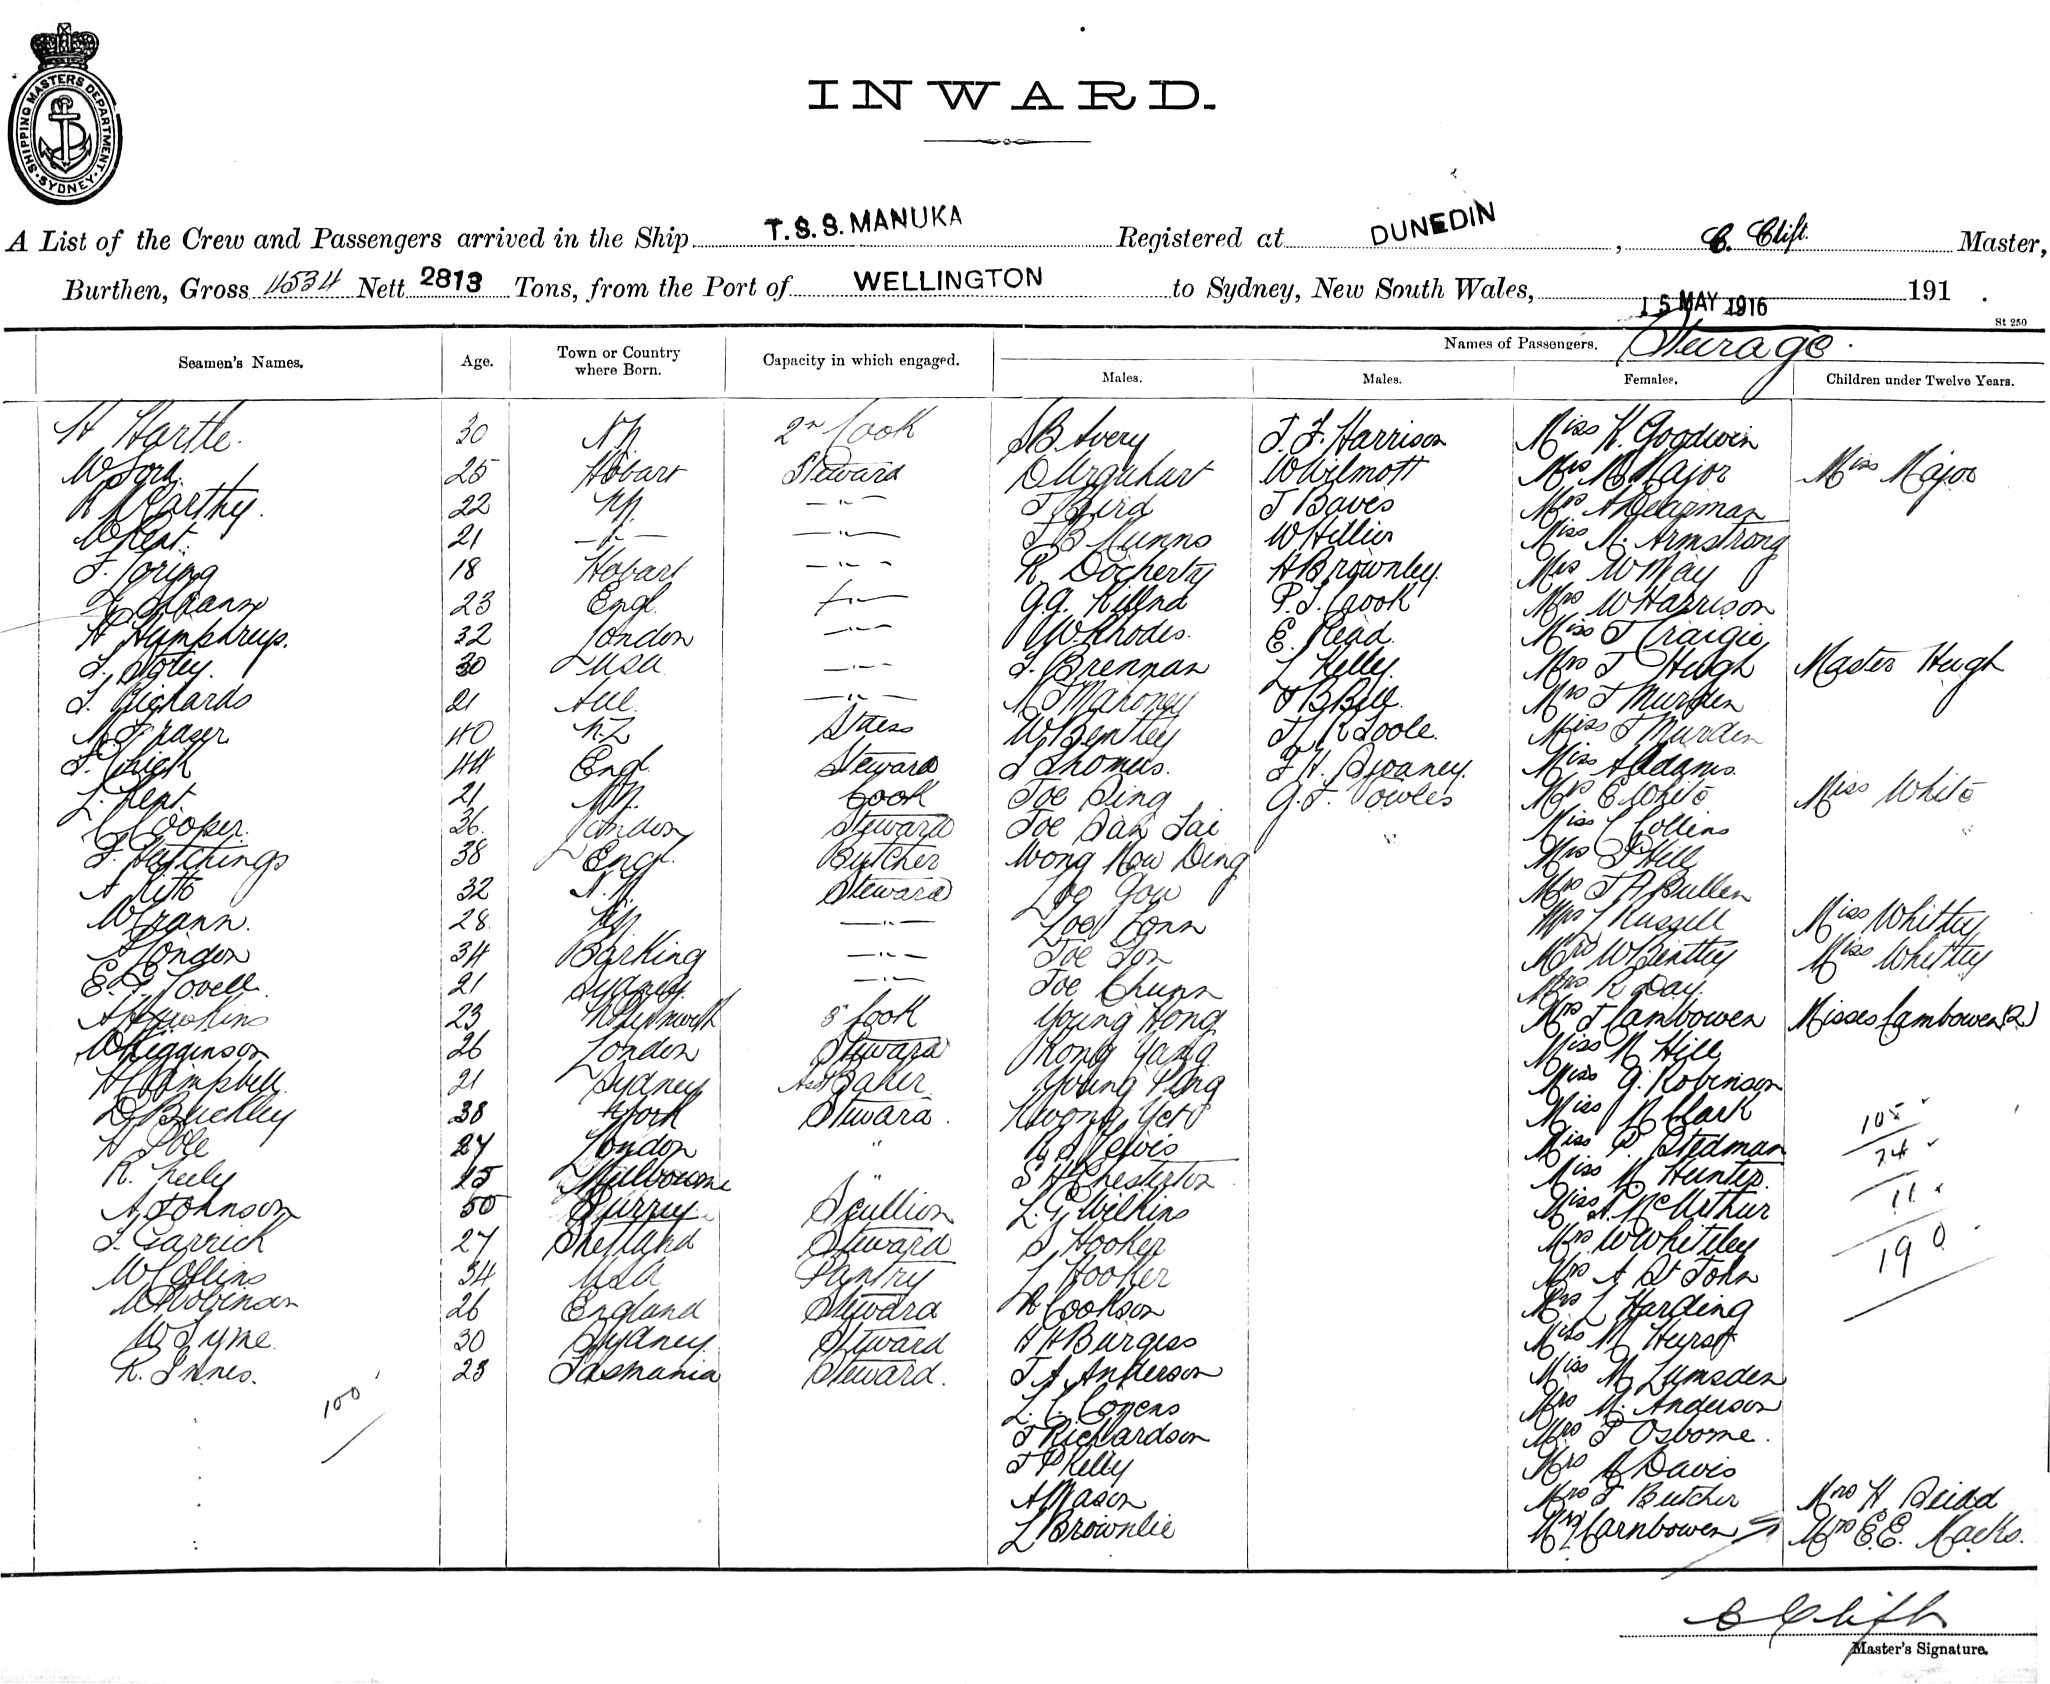 SHIPPING MASTERS DEPARTMENT · SYDNEY ·
INWARD.
A List of the Crew and Passengers arrived in the Ship T.S.S. MANUKA Registered at DUNEDIN, C. Clift Master,
Burthen, Gross 4534 Nett 2813 Tons, from the Port of WELLINGTON to Sydney, New South Wales, 15 MAY 1916 191 .
St 250
Seamen's Names. Age. Town or Country where Born. Capacity in which engaged. Names of Passengers. Steerage.
Males. Males. Females. Children under Twelve Years.
H Hartle. 30 NZ 2nd Cook S B Avery J. F. Harrison Miss K. Goodwin
W 25 Hobart Steward D Urquhart W Wilmott Mrs M Major Miss Major
R McCarthy. 22 NZ —"— J Bird J Baves Mrs A Dearman
W Kent. 21 —"— —"— J B Munns W Hillier Miss M. Armstrong
F. Loring 18 Hobart —"— R Docherty A Brownley. Mrs W May
23 Engl. —"— G.G. P. J. Cook Mrs W Harrison
H Humphreys. 32 London —"— W Rhodes. E. Read. Miss J Craigie
30 USA —"— J. Brennan L Kelly. Mrs J Hugh Master Hugh
J. Richards 21 —"— M J Mahoney J B Bell. Mrs J Murden
M. Fraser 40 N.Z Stress W Bentley J. R Toole. Miss J Murden
F. Chick 44 Engl. Steward J Thomas. F. H. Swaney. Miss A Adams.
L. Kent 21 NZ. Cook Joe Sing G. F. Vowles Mrs E White Miss White
C Cooper. 26. London Steward Joe San Tai Miss C Collins
F. Hutchings 38 Engl. Butcher Wong Kow Ding Mrs J Hill
A Kitto 32 N.Z Steward Loo Gow Mrs J A Bullen
W Crann. 28. NZ —"— Loe Conn Mrs J Russell Miss Whittey
A London 34 Barking —"— Joe Ton Mrs W Bentley Miss Whittey
E. F. Lovell. 21 Sydney. —"— Joe Chunn Mrs R Day.
A Hawkins 23 3rd Cook Young Hong Mrs J Cambowen Misses Cambowen (2)
W Higginson 26 London Steward Kong Yang Miss N Hill
H Campbell. 21 Sydney Asst Baker Young Ping Miss G. Robinson
D Buckley 38 York Steward. Kwong Yett Miss N Clark 105
H Pole 27 London " R S Lewis Miss P. Stedman 74
R. Neely 25 Melbourne " S H Chesterton Miss M Hunter. 11
A. Johnson 50 Surrey Scullion L. G Wilkins Miss A. McArthur
J. Garrick 27 Shetland Steward S Hooker Mrs W Whittey 190
W Collins 34 USA Pantry L Hooker Mrs A St John
W Robinson 26 England Steward R Cookson Mrs L Harding
W Syme. 30 Sydney. Steward A H Burgess Miss M Hurst
R. Innes. 23 Tasmania Steward. J. A. Anderson Miss M Lumsden
100 L. C. Cozens Mrs M. Anderson
J Richardson Mrs J Osborne.
J P Kelly Mrs A Davis
A Mason Mrs J Butcher Mrs H. Reidd
L Brownlie Mrs Carnbowen Mrs E. E. Macks.
C Clift
Master's Signature.